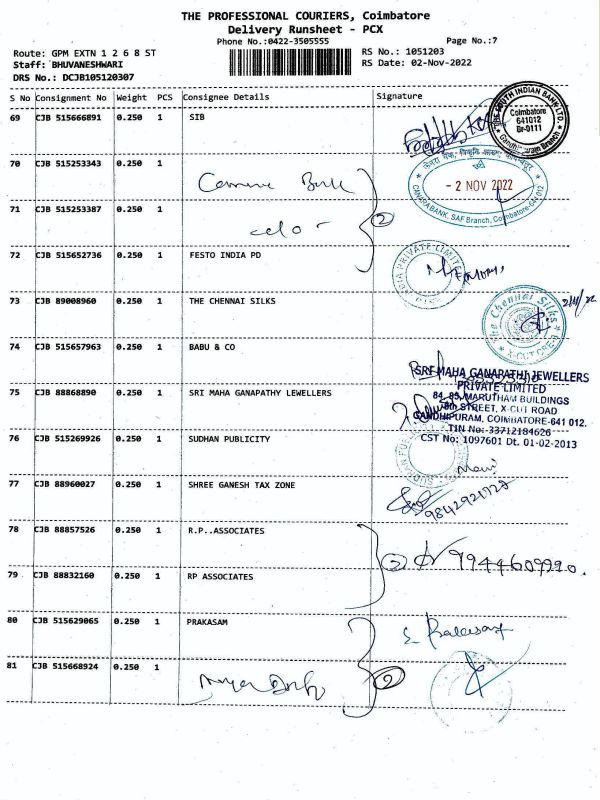 THE PROFESSIONAL COURIERS, Coimbatore
Delivery Runsheet - PCX
Phone No.:0422-3505555
Page No.:7
Route: GPM EXTN 1 2 6 8 ST
RS No.: 1051203
Staff: BHUVANESHWARI
RS Date: 02-Nov-2022
DRS No.: DCJB105120307
S No Consignment No Weight PCS Consignee Details Signature
69 CJB 515666891 0.250 1 SIB
THE SOUTH INDIAN BANK LTD.
Coimbatore
641012
Br-0111
70 CJB 515253343 0.250 1
- 2 NOV 2022
CANARA BANK, SAF Branch, Coimbatore-641 012
71 CJB 515253387 0.250 1
2
72 CJB 515652736 0.250 1 FESTO INDIA PD
73 CJB 89008960 0.250 1 THE CHENNAI SILKS
The Chennai Silks
74 CJB 515657963 0.250 1 BABU & CO
SRI MAHA GANAPATHI JEWELLERS
PRIVATE LIMITED
84, 85, MARUTHAM BUILDINGS
8th STREET, X-CUT ROAD
GANDHIPURAM, COIMBATORE-641 012.
TIN No: 33712184626
CST No: 1097601 Dt. 01-02-2013
75 CJB 88868890 0.250 1 SRI MAHA GANAPATHY LEWELLERS
76 CJB 515269926 0.250 1 SUDHAN PUBLICITY
77 CJB 88960027 0.250 1 SHREE GANESH TAX ZONE
78 CJB 88857526 0.250 1 R.P..ASSOCIATES
2 9944609920.
79 CJB 88832160 0.250 1 RP ASSOCIATES
80 CJB 515629065 0.250 1 PRAKASAM
81 CJB 515668924 0.250 1
2